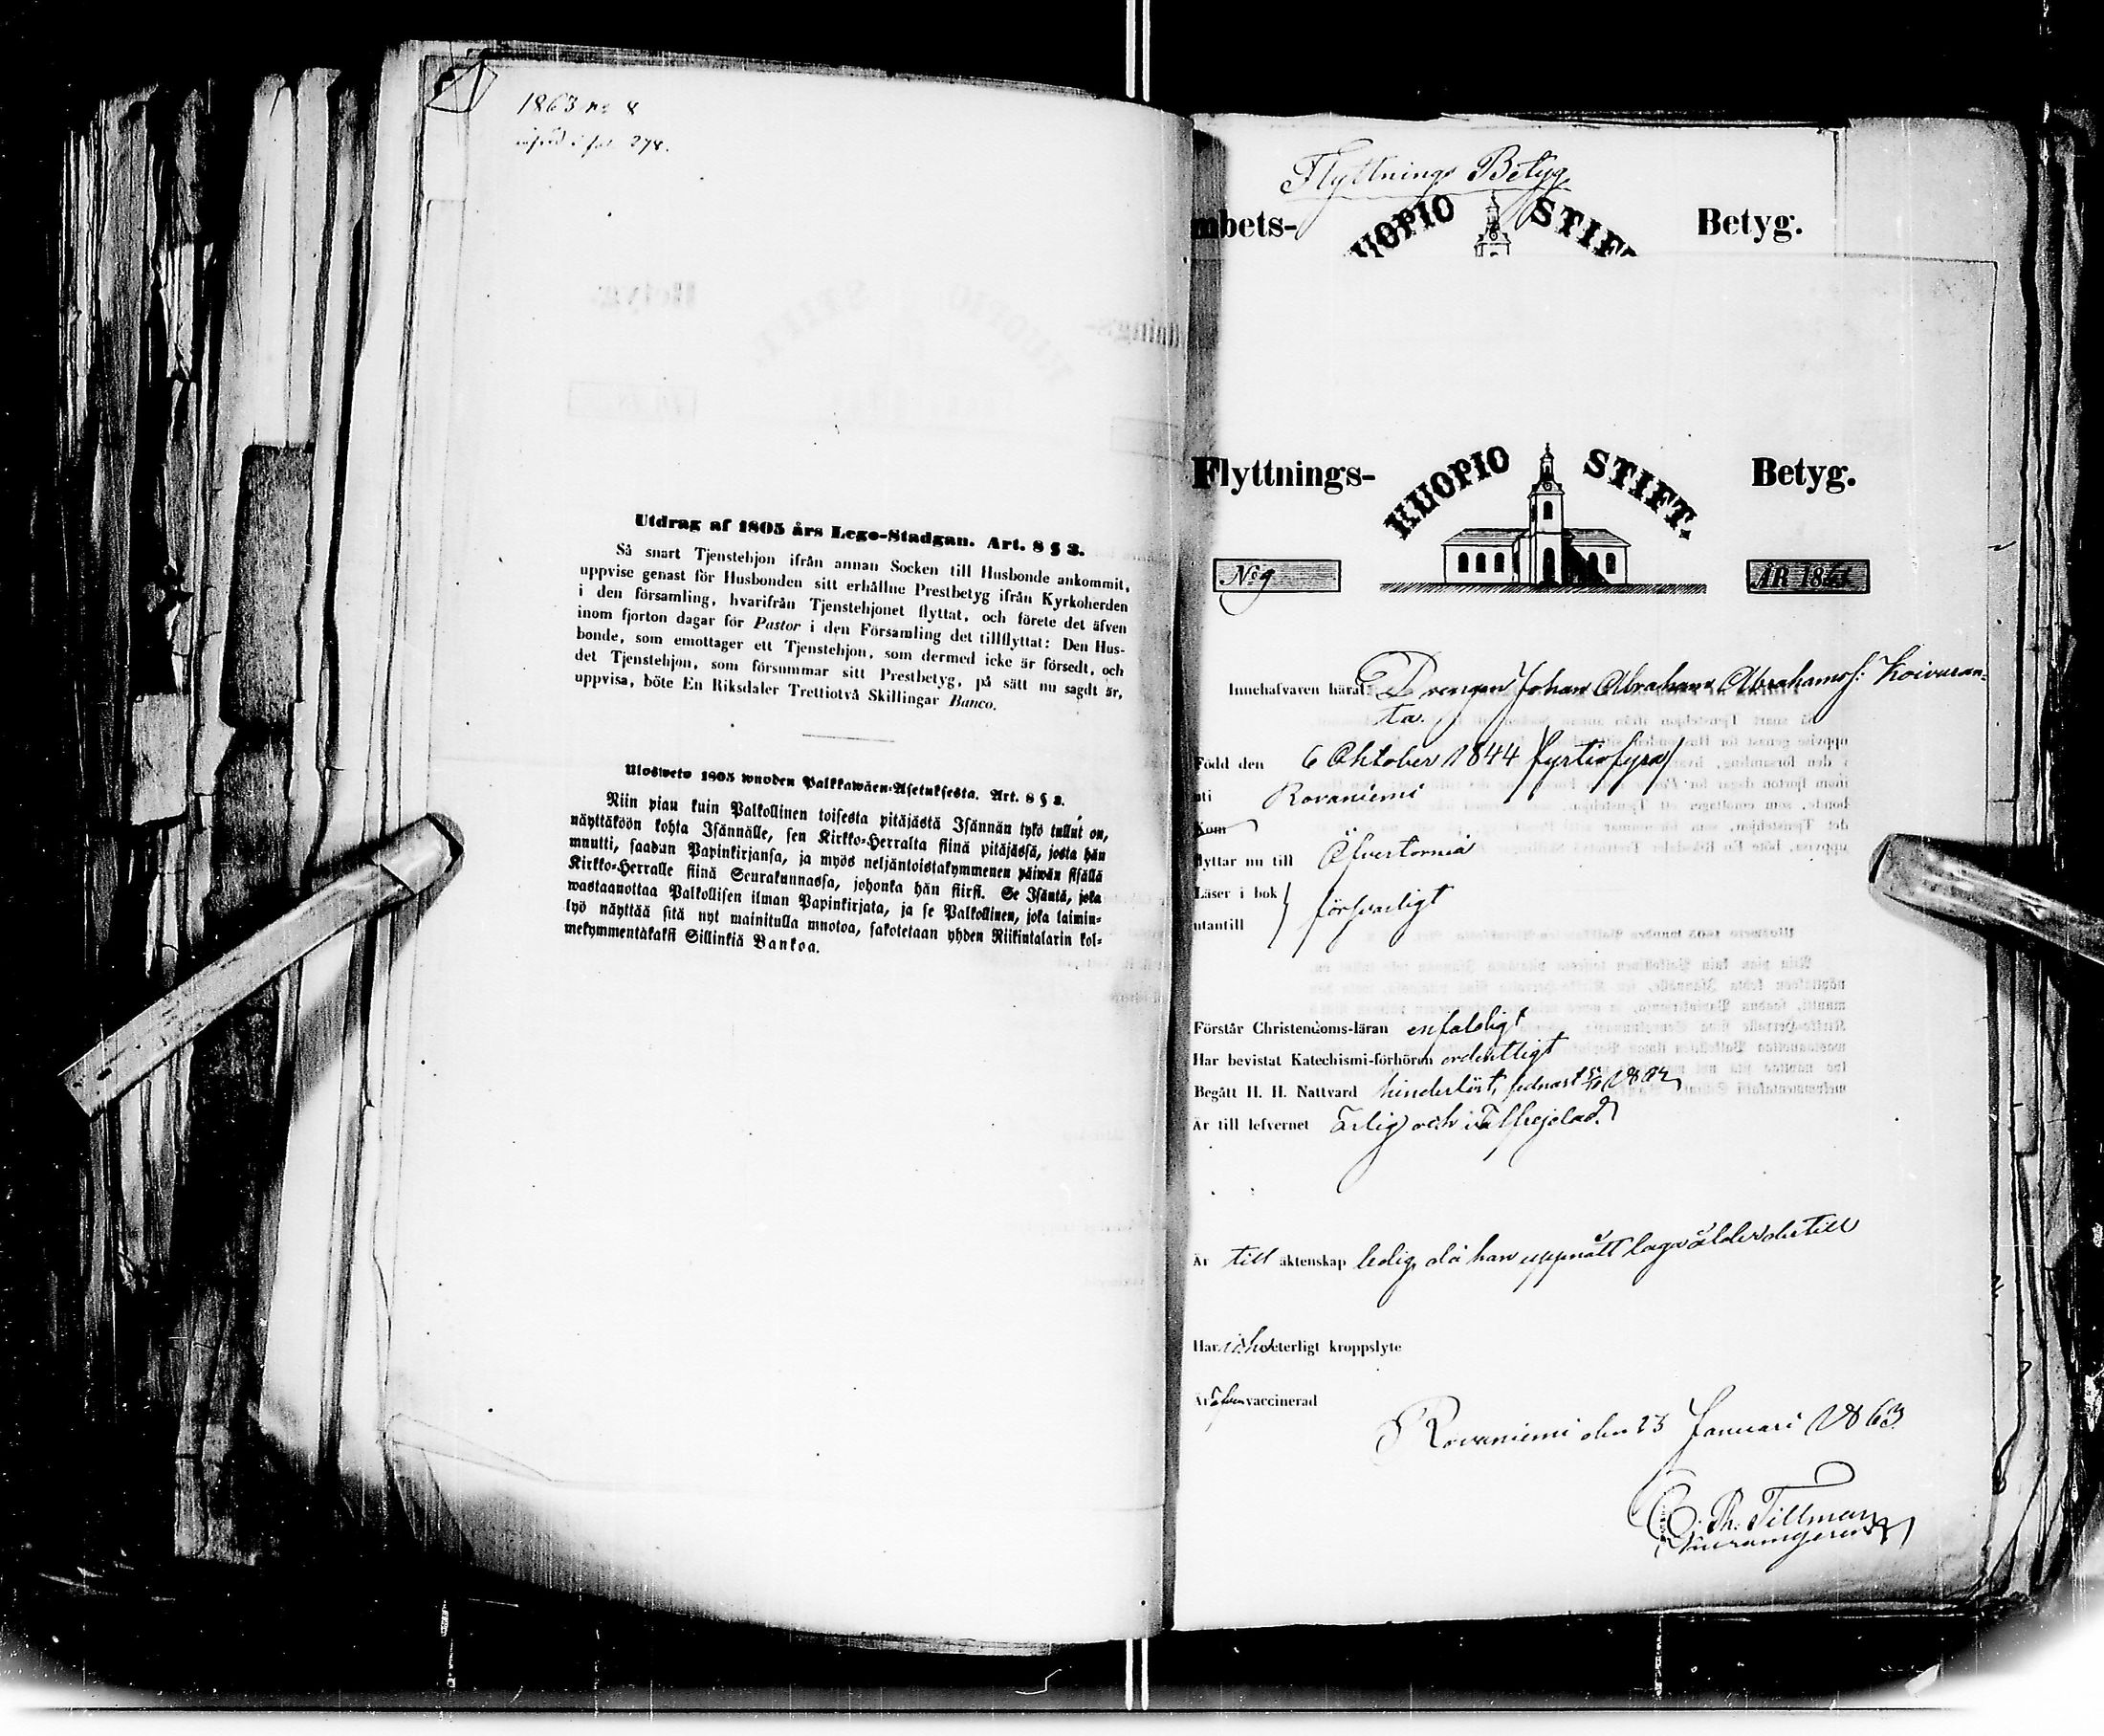 1863 no 8
införd i fol 278.
Utdrag af 1805 års Lego-Stadgan. Art. 8 § 3.
Så snart Tjenstehjon ifrån annan Socken till Husbonde ankommit,
uppvise genast för Husbonden sitt erhållne Prestbetyg ifrån Kyrkoherden
i den församling, hvarifrån Tjenstehjonet flyttat, och förete det äfven
inom fjorton dagar för Pastor i den Församling det tillflyttat: Den Hus-
bonde, som emottager ett Tjenstehjon, som dermed icke är försedt, och
det Tjenstehjon, som försummar sitt Prestbetyg, på sätt nu sagdt är,
uppvisa, böte En Riksdaler Trettiotvå Skillingar Banco.
Ulosweto 1805 wuoden Palkkawäen-Asetuksesta. Art. 8 § 3.
Niin pian kuin Palkollinen toisesta pitäjästä Isännän tykö tullut on,
näyttäköön kohta Isännälle, sen Kirkko-Herralta siinä pitäjässä, josta hän
muutti, saadun Papinkirjansa, ja myös neljäntoistakymmenen päiwän sisällä
Kirkko-Herralle siinä Seurakunnassa, johonka hän siirsi. Se Isäntä, joka
wastaanottaa Palkollisen ilman Papinkirjata, ja se Palkollinen, joka laimin-
lyö näyttää sitä nyt mainitulla muotoa, sakotetaan yhden Riikintalarin kol-
mekymmentäkaksi Sillinkiä Bankoa.
Flyttnings Betyg
mbets- UOPIO STIF Betyg.
Flyttnings- KUOPIO STIFT. Betyg.
No 9 ÅR 186
Innehafvaren häraf Drengen Johan Abraham Abrahamsf: Koivuran-
ta.
Född den 6 Oktober 1844 /fyrtiofyra/
uti Rovaniemi
Kom
flyttar nu till Öfvertorneå
Läser i bok } försvarligt
utantill
Förstår Christendoms-läran enfaldigt
Har bevistat Katechismi-förhören ordentligt
Begått H. H. Nattvard hinderlöst, sednast
Är till lefvernet Ärlig och välfrejdad.
Är till äktenskap ledig, då han uppnått laga ålder dertill
Har icke veterligt kroppslyte
Är äfven vaccinerad
Rovaniemi den 23 Januari 1863
C. Th. Tillman